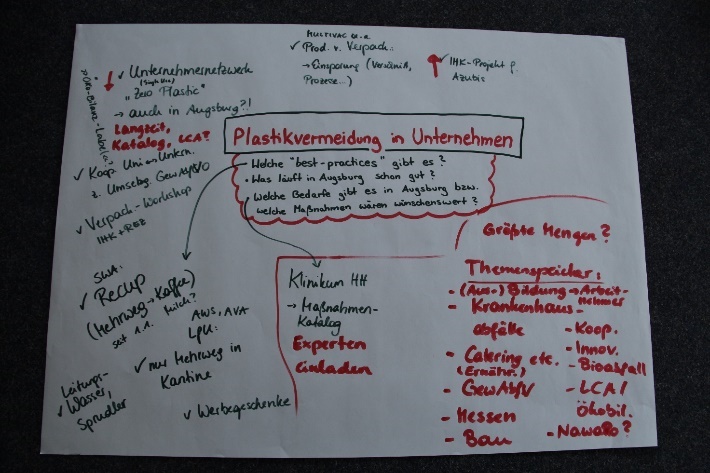 MULTIVAC u.a.
✓ Prod. v. Verpack.:
→ Einsparung (Verschnitt,
Prozesse...)
↑ ✓ IHK-Projekt f.
Azubis
↓ ✓ Unternehmensnetzwerk
"Zero Plastic"
→ auch in Augsburg?!
Langzeit,
Katalog, LCA?
Öko-Bilanz-Labels?
✓ Koop. Uni + Untern.
z. Umsetzg. GewAbfVO
✓ Verpack-Workshop
IHK + REZ
Plastikvermeidung in Unternehmen
- Welche "best-practices" gibt es?
• Was läuft in Augsburg schon gut?
- Welche Bedarfe gibt es in Augsburg bzw.
welche Maßnahmen wären wünschenswert?
SWA:
✓ Recup
(Mehrweg → Kaffee)
seit 1.1. Milch?
AWS, AVA
LfU:
✓ nur Mehrweg in
Kantine
Leitungs-
✓ Wasser,
Sprudler
✓ Werbegeschenke
Klinikum HH
→ Maßnahmen-
Katalog
Experten
einladen
Größte Mengen?
Themenspeicher:
- (Aus-) Bildung → Arbeit-
nehmer
- Krankenhaus-
abfälle
- Catering etc.
(Ernähr.)
- GewAbfV
- Messen
- Bau
- Koop.
- Innov.
- Bioabfall
- LCA/
Ökobil.
- NawaRo?